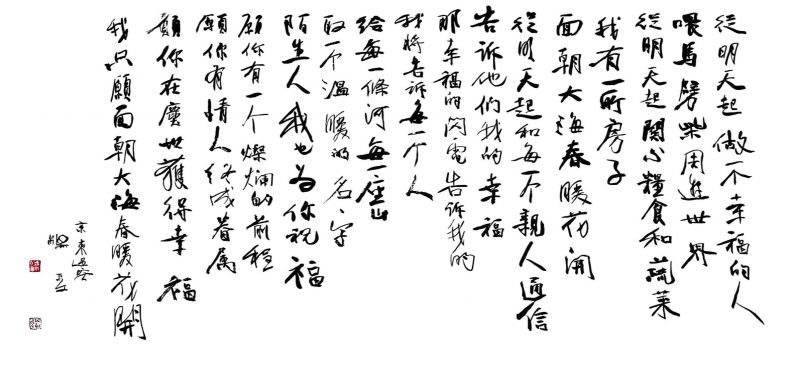 從明天起做一个幸福的人
喂馬劈柴周遊世界
從明天起関心糧食和蔬菜
我有一所房子
面朝大海春暖花開
從明天起和每一个親人通信
告訴他们我的幸福
那幸福的閃電告訴我的
我將告訴每一个人
給每一條河每一座山
取一个温暖的名字
陌生人我也为你祝福
願你有一个燦爛的前程
願你有情人终成眷属
願你在塵世獲得幸福
我只願面朝大海春暖花開